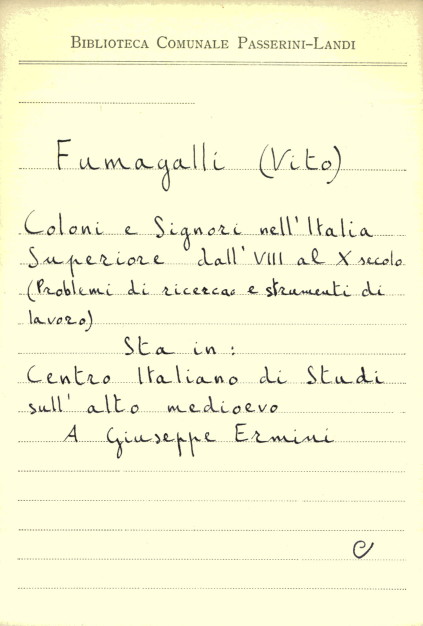 BIBLIOTECA COMUNALE PASSERINI-LANDI
Fumagalli (Vito)
Coloni e Signori nell'Italia
Superiore dall'VIII al X secolo
(Problemi di ricerca e strumenti di
lavoro)
Sta in:
Centro Italiano di Studi
sull'alto medioevo
A Giuseppe Ermini